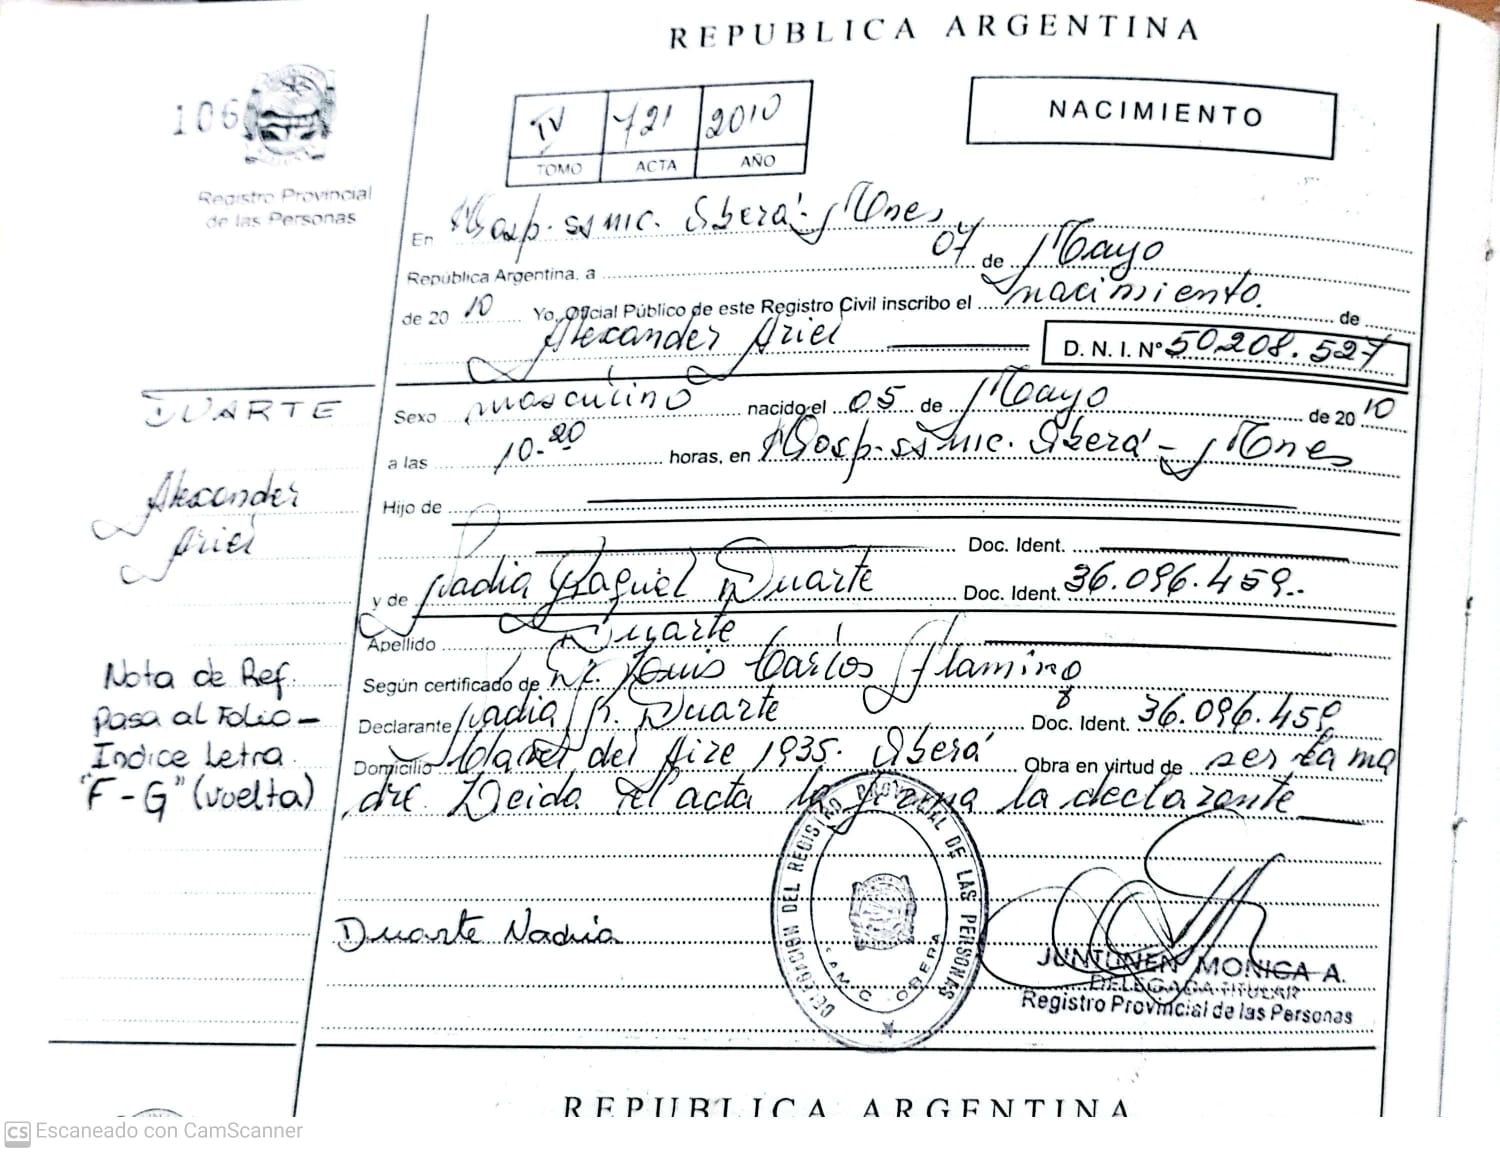 REPUBLICA ARGENTINA
106
Registro Provincial
de las Personas
IV 721 2010
TOMO ACTA AÑO
NACIMIENTO
En Hosp. ss mc. Oberá - Mnes
República Argentina, a 07 de Mayo
de 20 10 Yo, Oficial Público de este Registro Civil inscribo el nacimiento. de
Alexander Ariel D. N. I. Nº 50.208.527
DUARTE
Alexander
Ariel
Sexo masculino nacido el 05 de Mayo de 20 10
a las 10.20 horas, en Hosp. ss mc. Oberá - Mnes
Hijo de
Doc. Ident.
y de Nadia Raquel Duarte Doc. Ident. 36.096.459..
Apellido Duarte
Según certificado de Dr. Luis Carlos Flamiño
Declarante Nadia R. Duarte Doc. Ident. 36.096.459
Domicilio Clavel del Aire 1935. Oberá Obra en virtud de ser la ma
dre. Leida el acta la firma la declarante
Nota de Ref.
Pasa al Folio -
Indice Letra
"F - G" (vuelta)
Duarte Nadia
DELEGACION DEL REGISTRO PROVINCIAL DE LAS PERSONAS
OBERA
JUNTUNEN MONICA A.
DELEGADA TITULAR
Registro Provincial de las Personas
REPUBLICA ARGENTINA
CS Escaneado con CamScanner